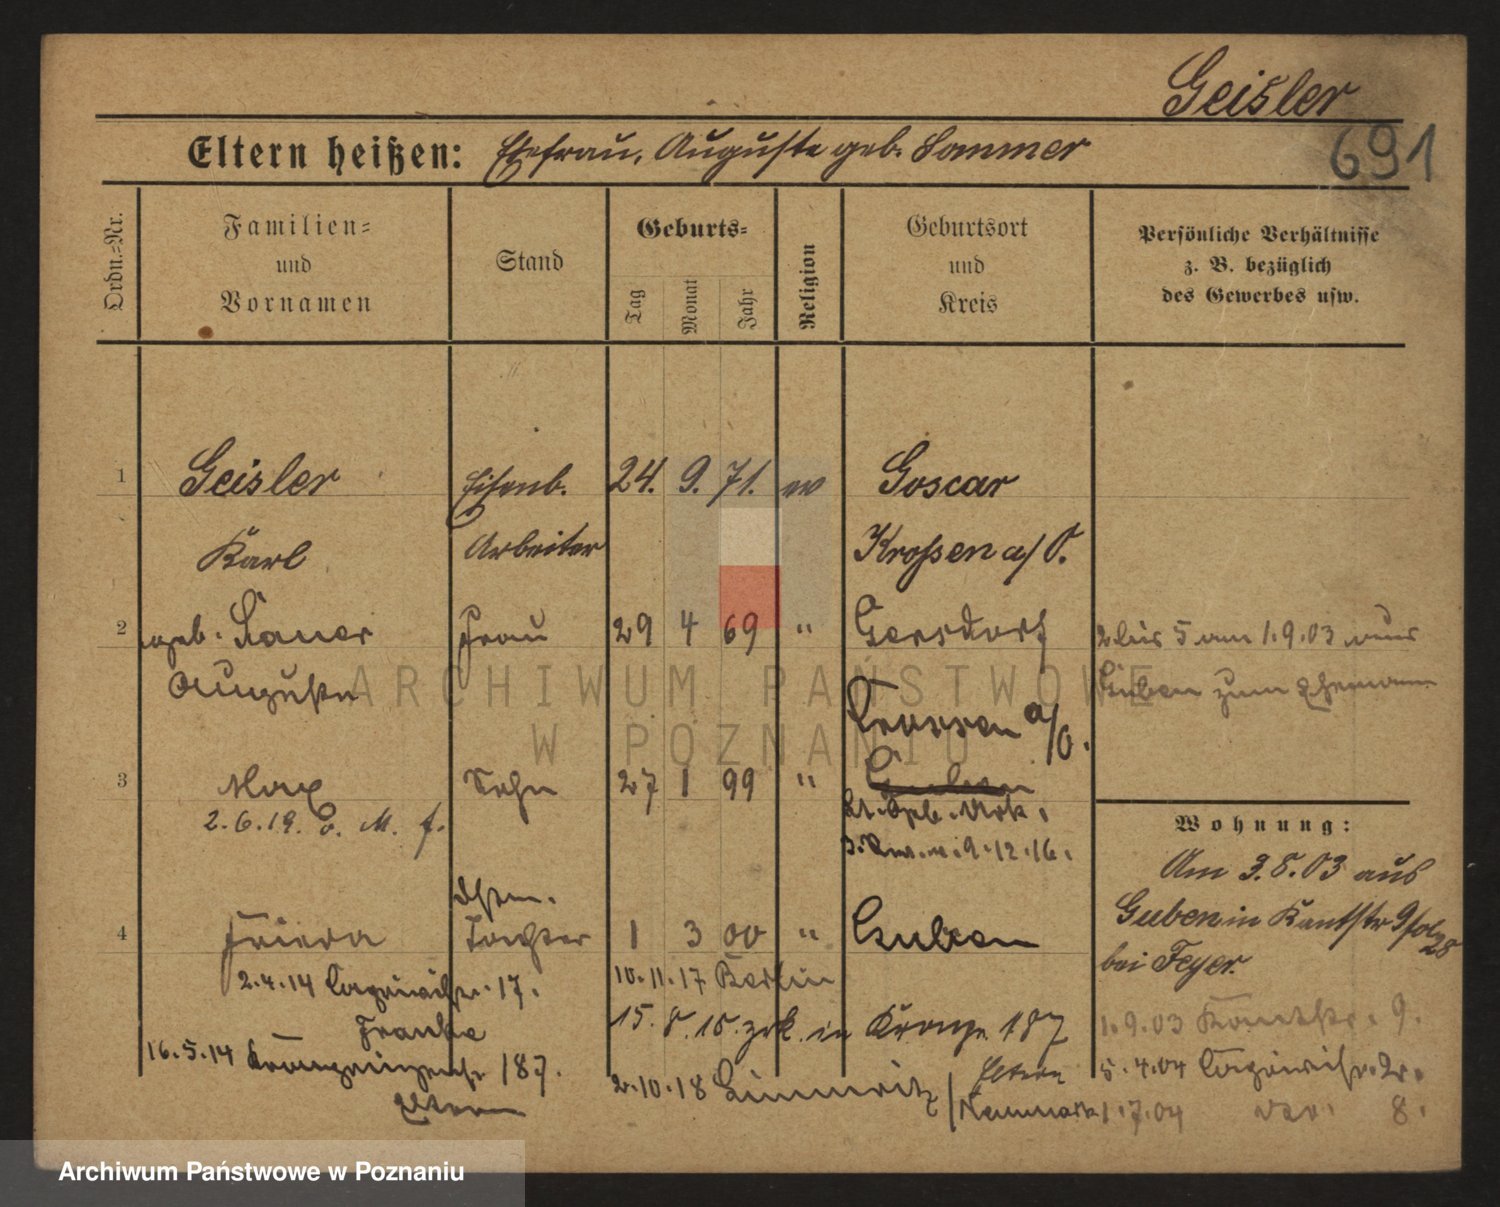 Geisler
691
Eltern heißen: Ehefrau, Auguste geb. Sommer
Ordn.-Nr.
Familien-
und
Vornamen
Stand
Geburts-
Tag
Monat
Jahr
Religion
Geburtsort
und
Kreis
Persönliche Verhältnisse
z. B. bezüglich
des Gewerbes usw.
1 Geisler Eisenb. 24. 9. 71. ev Goscar
Karl Arbeiter Krossen a/O.
2 geb. Frau 29 4 69 " Gersdorf 2 bis 5 am 1.9.03 aus
Auguste Guben zum Ehemann
Crossen a/O.
3 Max Sohn 27 1 99 " Guben
2.6.19. v. M. f.
9.12.16.
Wohnung:
Am 3.8.03 aus
Guben in Kantstr 9
bei Feyer.
4 Frieda Tochter 1 3 00 " Guben
2.4.14 17.
10.11.17 Berlin
Franke
15. 8. 18. zrk. in Kronpr. 187
1.9.03 Kantstr. 9.
16.5.14 Kronprinzenstr 187.
Eltern
2.10.18 Limmritz
Eltern
Neumark
5.4.04 2.
1.7.04 8.
ARCHIWUM PAŃSTWOWE
W POZNANIU
Archiwum Państwowe w Poznaniu